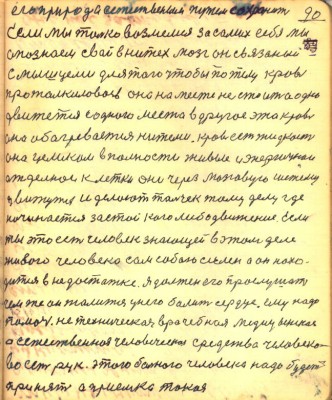 его природа естественый путем сохранит
90
Если мы только возмемся за самих себя мы
опознаем свай в нитех мозг он связаный
с мышцеми для таго чтобы по тем кровь
проталкиволась она на месте не стоит а одно
движется с одного места в другое эта кровь
она обагревается нитеми. кровь есть жидкость
она целиком в полности живые и энергичнои
отделоное клетки они через мозговую систему
движутся и делоют талчек тому делу где
начинается застой какого либо движение. Если
ты это есть человек знающей в этом деле
живого человека сам собою силен а он нахо-
дится в недостатке. Я должен его прослушать
чем же он толится у него балит сердце. ему надо
помочь. не техническая врачебная медицынская
а естественноя человеческа средства человеко-
во есть рук. этого болного человека надо будет
принять а приемка такоя